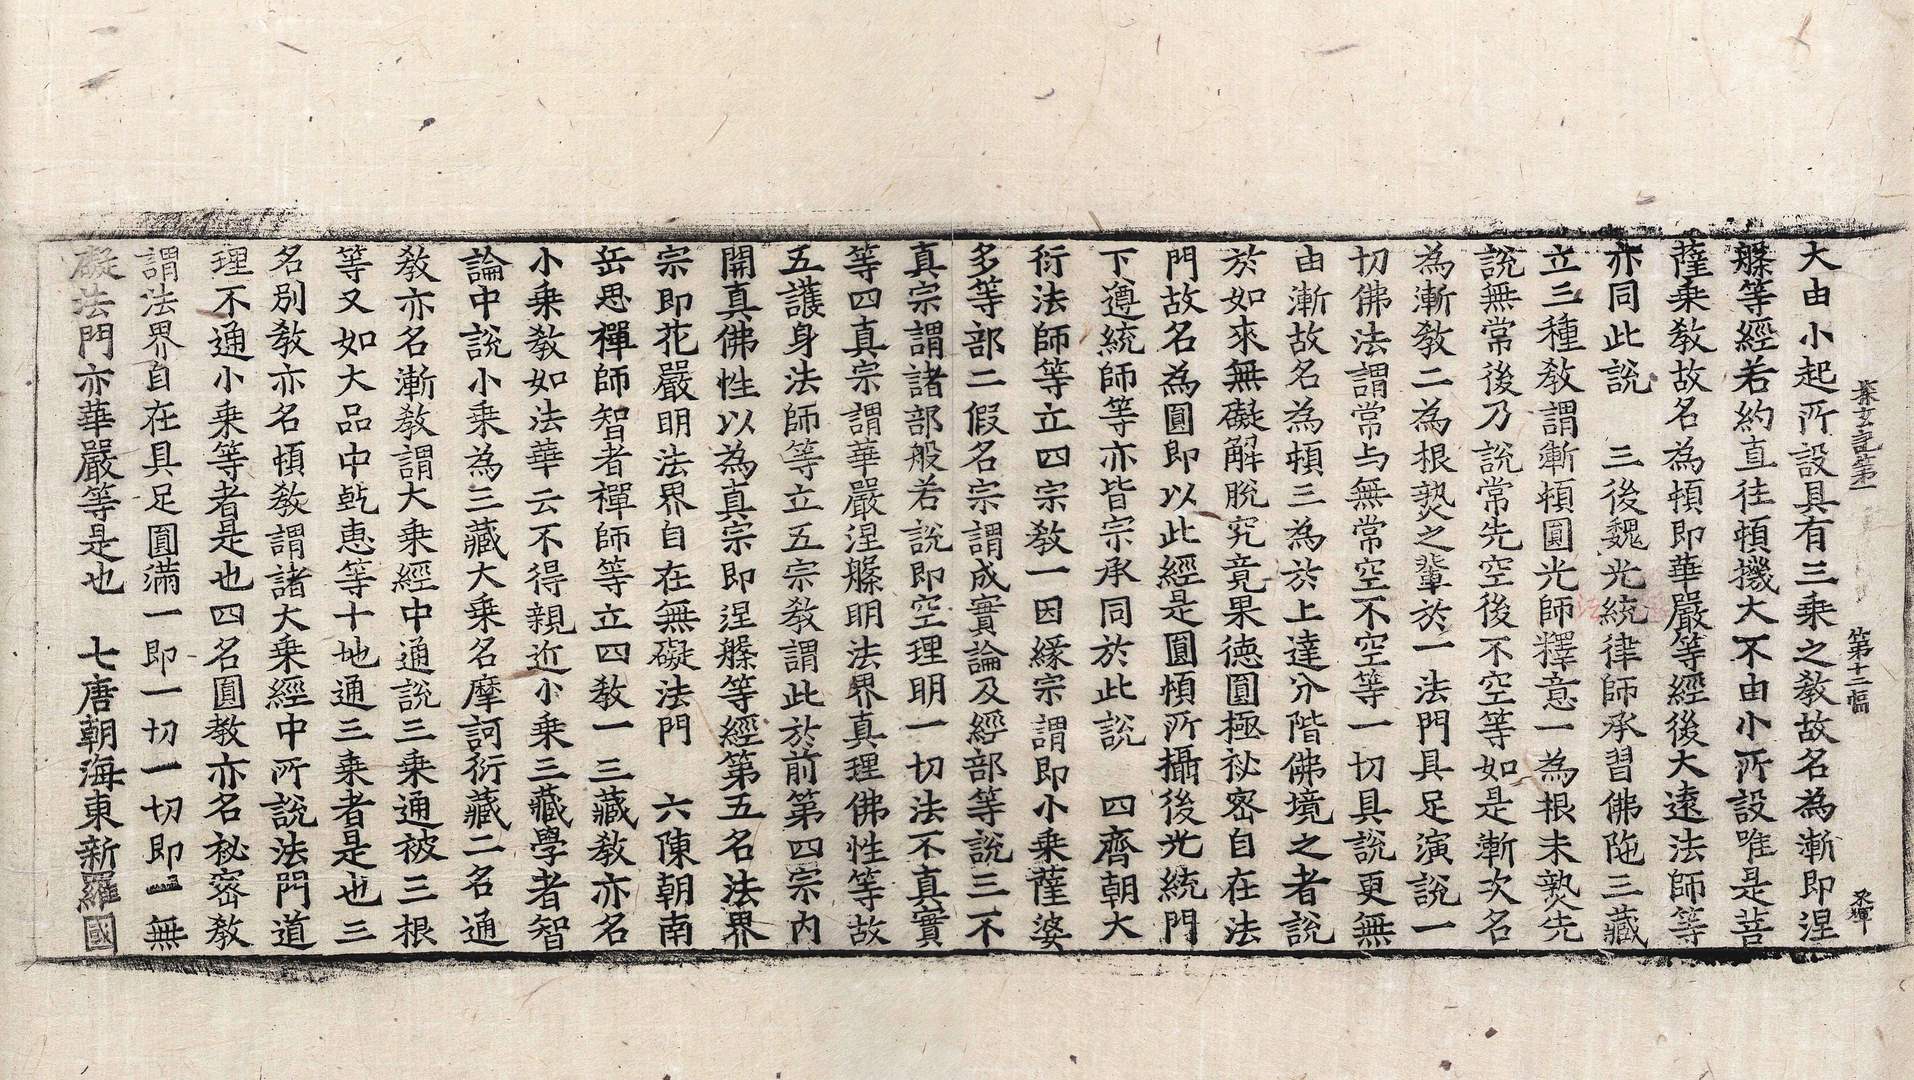 玄記第一　第十二幅
大由小起所設具有三乗之教故名為漸即涅
槃等經若約直往頓機大不由小所設唯是菩
薩乗教故名為頓即華嚴等經後大遠法師等
亦同此說　三後魏光統律師承習佛陁三藏
立三種教謂漸頓圓光師釋意一為根未熟先
說無常後乃說常先空後不空等如是漸次名
為漸教二為根熟之輩於一法門具足演說一
切佛法謂常与無常空不空等一切具說更無
由漸故名為頓三為於上達分階佛境之者說
於如來無礙解脫究竟果德圓極祕密自在法
門故名為圓即以此經是圓頓所攝後光統門
下遵統師等亦皆宗承同於此說　四齊朝大
衍法師等立四宗教一因緣宗謂即小乗薩婆
多等部二假名宗謂成實論及經部等說三不
真宗謂諸部般若說即空理明一切法不真實
等四真宗謂華嚴涅槃明法界真理佛性等故
五護身法師等立五宗教謂此於前第四宗内
開真佛性以為真宗即涅槃等經第五名法界
宗即花嚴明法界自在無礙法門　六陳朝南
岳思禪師智者禪師等立四教一三藏教亦名
小乗教如法華云不得親近小乗三藏學者智
論中說小乗為三藏大乗名摩訶衍藏二名通
教亦名漸教謂大乗經中通說三乗通被三根
等又如大品中乹惠等十地通三乗者是也三
名別教亦名頓教謂諸大乗經中所說法門道
理不通小乗等者是也四名圓教亦名秘密教
謂法界自在具足圓滿一即一切一切即一無
礙法門亦華嚴等是也　七唐朝海東新羅國